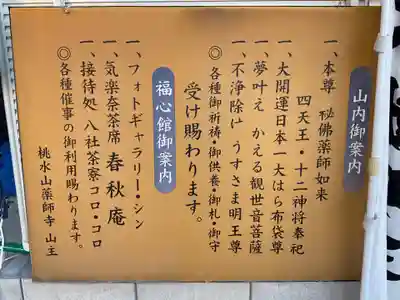 山内御案内
一、本尊 秘佛薬師如来
四天王・十二神将奉祀
一、大開運日本一大はら布袋尊
一、夢叶え かえる観世音菩薩
一、不浄除け うすさま明王尊
◎各種御祈祷・御供養・御札・御守
受け賜わります。
福心館御案内
一、フォトギャラリー・シン
一、気楽奈茶席 春秋庵
一、接待処 八社茶寮コロ・コロ
◎各種催事の御利用賜わります。
桃水山薬師寺 山主